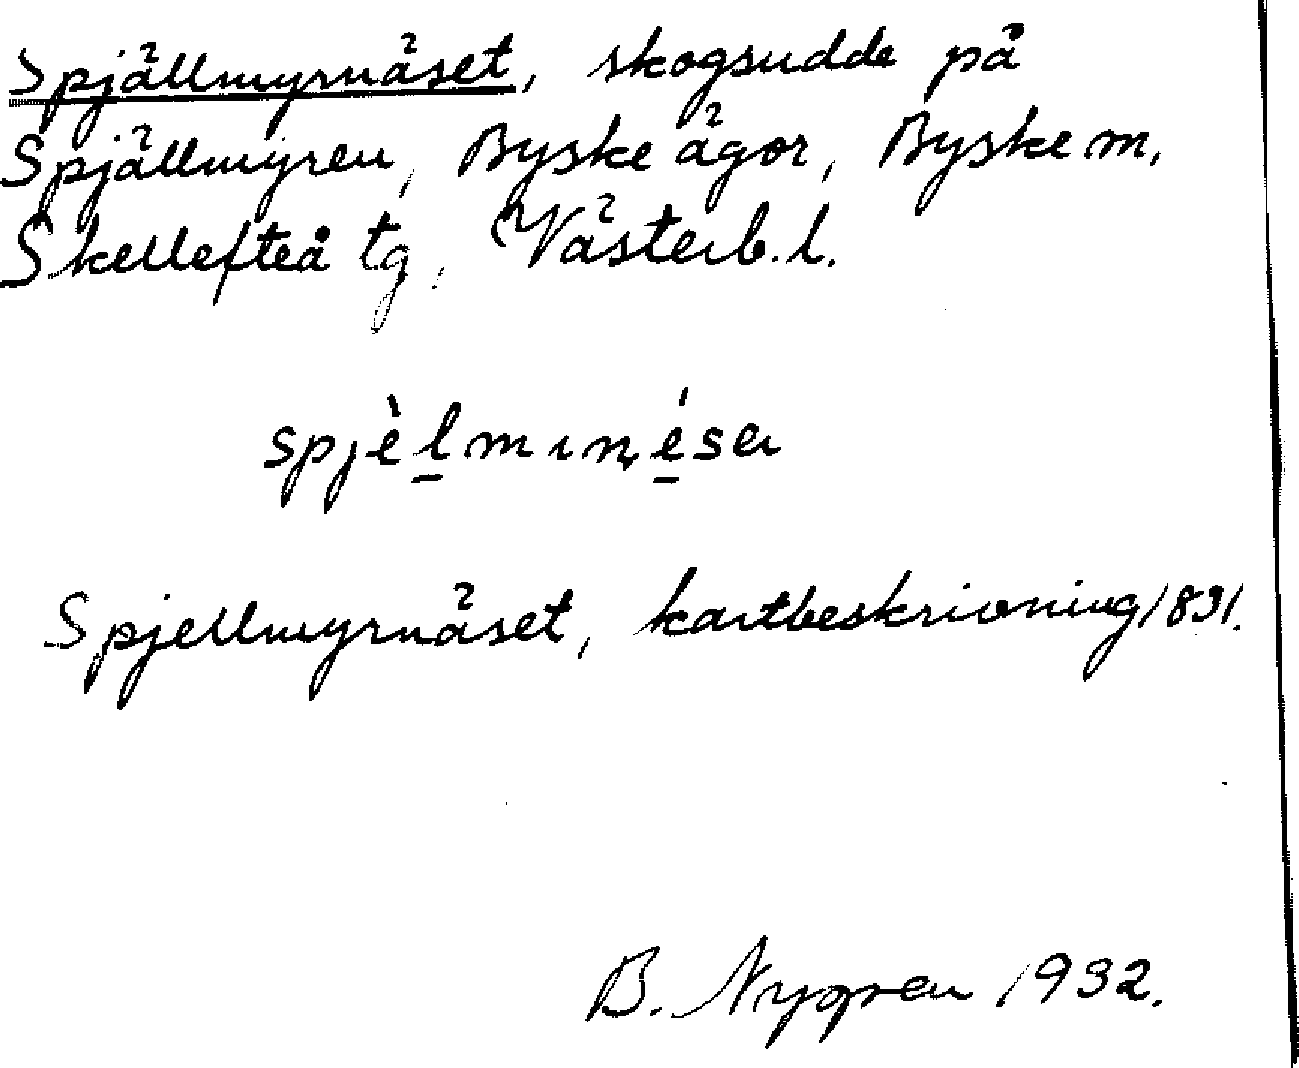 Spjällmyrnäset, skogsudde på
Spjällmyren, Byske ägor, Byske m,
Skellefteå tg, Västerb. l.
spjèl̲mɪn̨é̲sa
Spjellmyrnäset, kartbeskrivning 1891.
B. Nygren 1932.